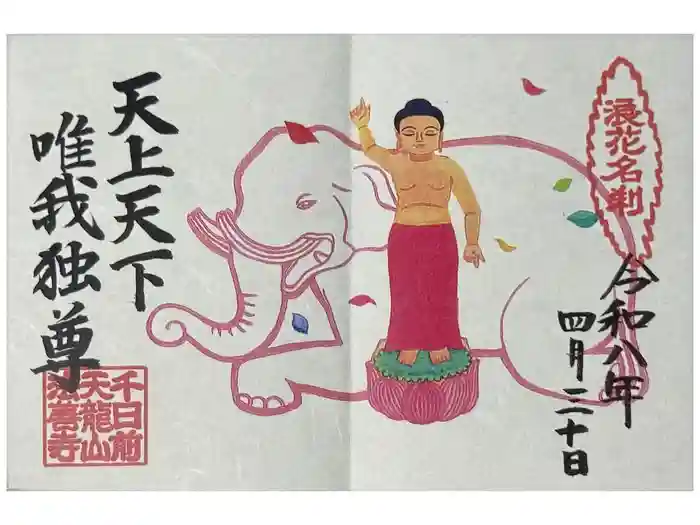 浪花名刹
令和八年
四月三十日
天上天下
唯我独尊
千日前
天龍山
法善寺